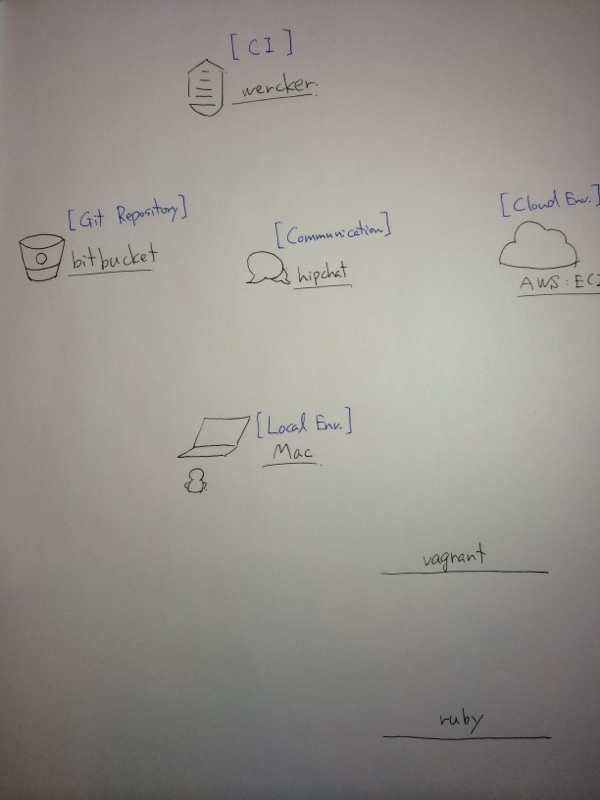 [CI]
wercker.
[Git Repository]
bitbucket
[Communication]
hipchat
[Cloud Env.]
AWS:EC2
[Local Env.]
Mac
vagrant
ruby